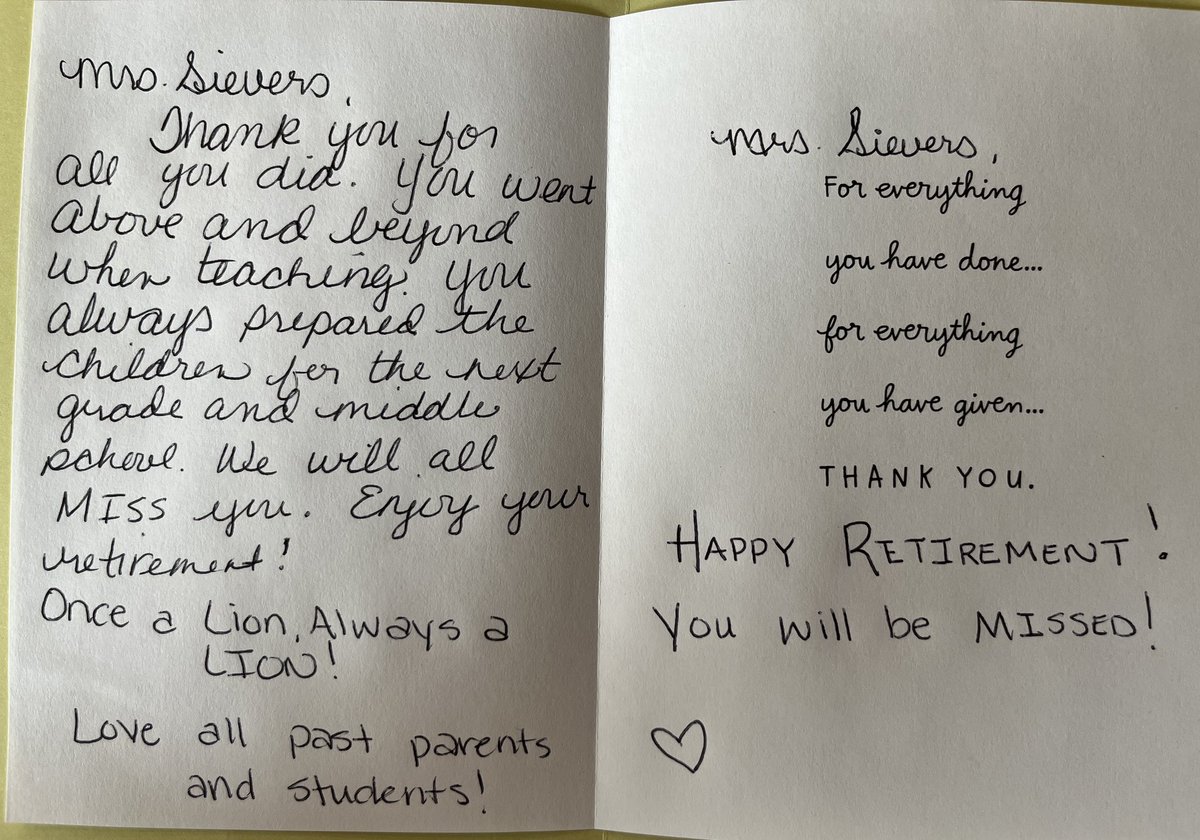 Mrs. Sievers,
Thank you for
all you did. You went
above and beyond
when teaching. You
always prepared the
children for the next
grade and middle
school. We will all
MISS you. Enjoy your
retirement!
Once a Lion, Always a
LION!
Love all past parents
and students!
Mrs. Sievers,
For everything
you have done...
for everything
you have given...
THANK YOU.
HAPPY RETIREMENT!
You will be MISSED!